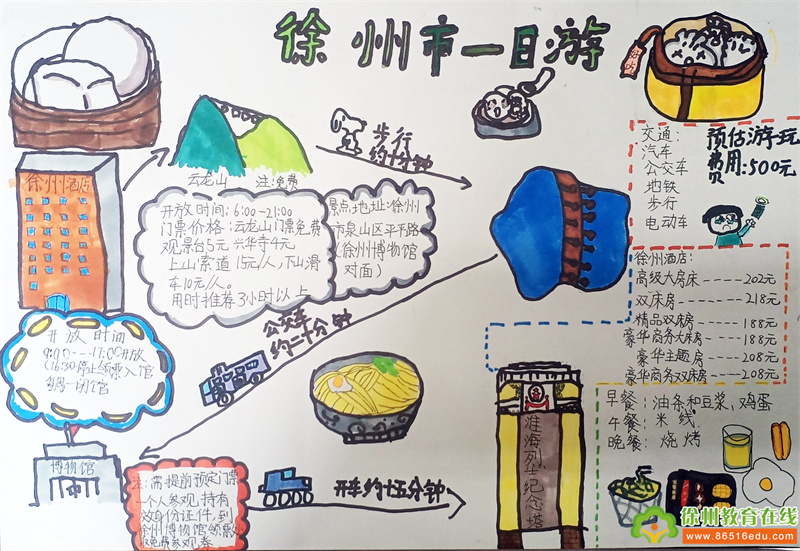 徐州市一日游
好吃
徐州酒店
云龙山 注:免费
步行
约十分钟
开放时间:6:00-21:00
门票价格:云龙山门票免费
观景台5元 兴华寺4元
上山索道15元/人,下山滑
车10元/人。
用时推荐3小时以上
景点地址:徐州
市泉山区平路
(徐州博物馆
对面)
交通:
汽车
公交车
地铁
步行
电动车
预估游玩
费用:500元
徐州酒店:
高级大床房------202元
双床房------218元
精品双床房------188元
豪华商务大床房---188元
豪华主题房----208元
豪华商务双床房---208元
公交车
约二十分钟
开放时间
9:00---17:00开放
(16:30停止领票入馆
每周一闭馆
博物馆
注:需提前预定门票
一个人参观,持有
效身份证件,到
徐州博物馆领票
免费参观券
开车约十五分钟
淮海烈士纪念塔
早餐:油条和豆浆、鸡蛋
午餐:米线
晚餐:烧烤
徐州教育在线
www.86516edu.com